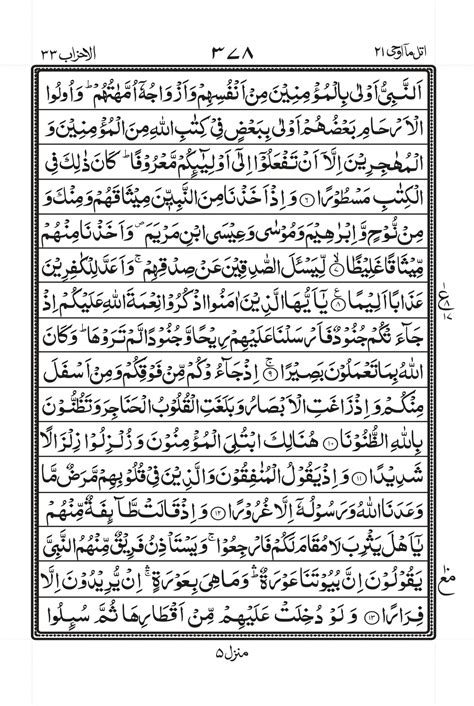 اتل مآ اوحی ۲۱ ۳۷۸ الاحزاب ۳۳
اَلنَّبِیُّ اَوْلٰی بِالْمُؤْمِنِیْنَ مِنْ اَنْفُسِهِمْ وَاَزْوَاجُهٗۤ اُمَّهٰتُهُمْ ؕ وَاُولُوا
الْاَرْحَامِ بَعْضُهُمْ اَوْلٰی بِبَعْضٍ فِیْ كِتٰبِ اللّٰهِ مِنَ الْمُؤْمِنِیْنَ وَ
الْمُهٰجِرِیْنَ اِلَّاۤ اَنْ تَفْعَلُوْۤا اِلٰۤی اَوْلِیٰٓئِكُمْ مَّعْرُوْفًا ؕ كَانَ ذٰلِكَ فِی
الْكِتٰبِ مَسْطُوْرًا ۝۶ وَاِذْ اَخَذْنَا مِنَ النَّبِیّٖنَ مِیْثَاقَهُمْ وَمِنْكَ وَ
مِنْ نُّوْحٍ وَّاِبْرٰهِیْمَ وَمُوْسٰی وَعِیْسَی ابْنِ مَرْیَمَ ۪ وَاَخَذْنَا مِنْهُمْ
مِّیْثَاقًا غَلِیْظًا ۝۷ لِّیَسْـَٔلَ الصّٰدِقِیْنَ عَنْ صِدْقِهِمْ ۚ وَاَعَدَّ لِلْكٰفِرِیْنَ
عَذَابًا اَلِیْمًا ۝۸ یٰۤاَیُّهَا الَّذِیْنَ اٰمَنُوا اذْكُرُوْا نِعْمَةَ اللّٰهِ عَلَیْكُمْ اِذْ
ع ۱۷
جَآءَتْكُمْ جُنُوْدٌ فَاَرْسَلْنَا عَلَیْهِمْ رِیْحًا وَّجُنُوْدًا لَّمْ تَرَوْهَا ؕ وَكَانَ
اللّٰهُ بِمَا تَعْمَلُوْنَ بَصِیْرًا ۝۹ اِذْ جَآءُوْكُمْ مِّنْ فَوْقِكُمْ وَمِنْ اَسْفَلَ
مِنْكُمْ وَاِذْ زَاغَتِ الْاَبْصَارُ وَبَلَغَتِ الْقُلُوْبُ الْحَنَاجِرَ وَتَظُنُّوْنَ
بِاللّٰهِ الظُّنُوْنَا ۝۱۰ هُنَالِكَ ابْتُلِیَ الْمُؤْمِنُوْنَ وَزُلْزِلُوْا زِلْزَالًا
شَدِیْدًا ۝۱۱ وَاِذْ یَقُوْلُ الْمُنٰفِقُوْنَ وَالَّذِیْنَ فِیْ قُلُوْبِهِمْ مَّرَضٌ مَّا
وَعَدَنَا اللّٰهُ وَرَسُوْلُهٗۤ اِلَّا غُرُوْرًا ۝۱۲ وَاِذْ قَالَتْ طَّآئِفَةٌ مِّنْهُمْ
یٰۤاَهْلَ یَثْرِبَ لَا مُقَامَ لَكُمْ فَارْجِعُوْا ۚ وَیَسْتَاْذِنُ فَرِیْقٌ مِّنْهُمُ النَّبِیَّ
یَقُوْلُوْنَ اِنَّ بُیُوْتَنَا عَوْرَةٌ ؕۛ وَمَا هِیَ بِعَوْرَةٍ ۛۚ اِنْ یُّرِیْدُوْنَ اِلَّا
فِرَارًا ۝۱۳ وَلَوْ دُخِلَتْ عَلَیْهِمْ مِّنْ اَقْطَارِهَا ثُمَّ سُىِٕلُوا
منزل ۵